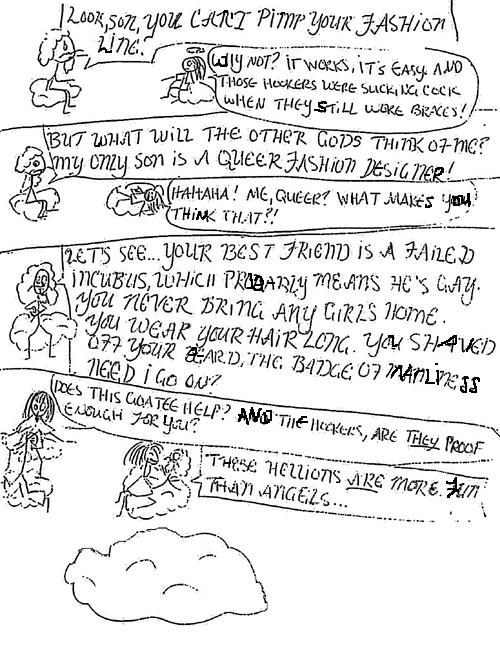 LOOK, SON, YOU CAN'T PIMP YOUR FASHION
LINE.
WHY NOT? IT WORKS, IT'S EASY. AND
THOSE HOOKERS WERE SUCKING COCK
WHEN THEY STILL WORE BRACES!
BUT WHAT WILL THE OTHER GODS THINK OF ME?
MY ONLY SON IS A QUEER FASHION DESIGNER!
HAHAHA! ME, QUEER? WHAT MAKES YOU
THINK THAT?!
LET'S SEE... YOUR BEST FRIEND IS A FAILED
INCUBUS, WHICH PROBABLY MEANS HE'S GAY.
YOU NEVER BRING ANY GIRLS HOME.
YOU WEAR YOUR HAIR LONG. YOU SHAVED
OFF YOUR BEARD, THE BADGE OF MANLINESS
NEED I GO ON?
DOES THIS GOATEE HELP? AND THE HOOKERS, ARE THEY PROOF
ENOUGH FOR YOU?
THESE HELLIONS ARE MORE FUN
THAN ANGELS...